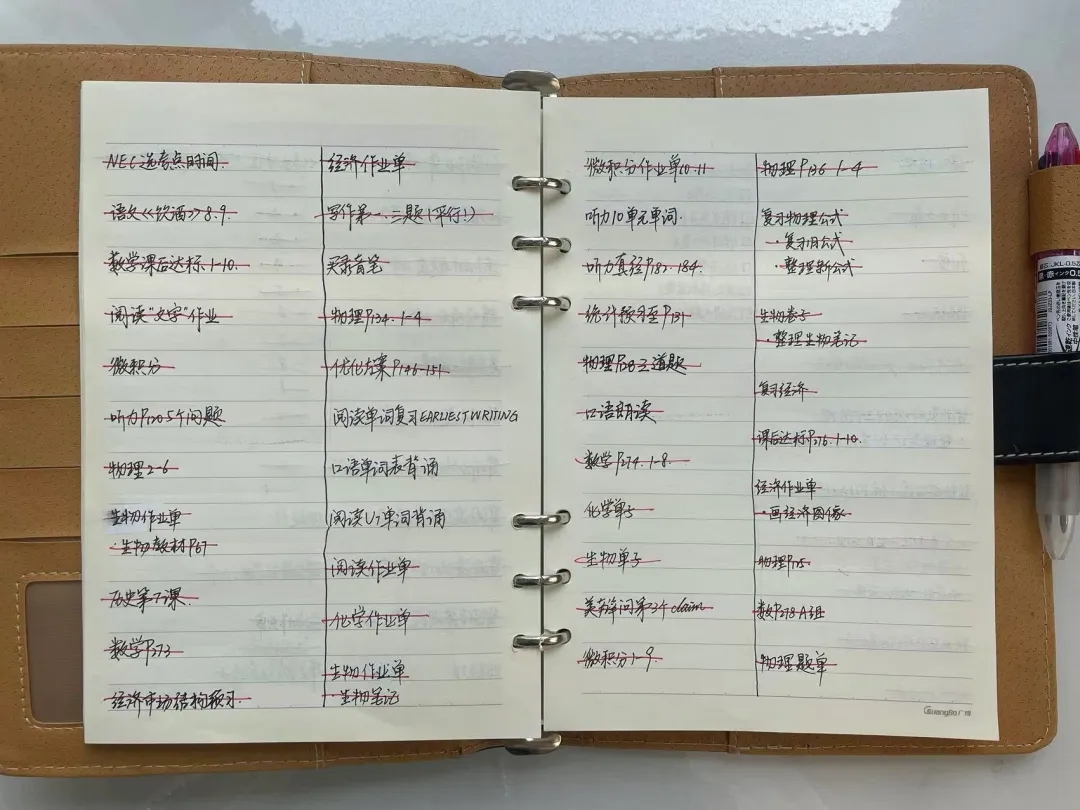 NEC选考点时间
语文《饮酒》8.9.
数学课后达标.1-10.
阅读"文字"作业
微积分
听力P120 5个问题
物理2-6
生物作业单
·生物教材P67
历史第7课.
数学P373
经济市场结构预习.
经济作业单
写作第一.二题(平行!)
买录音笔
物理P134.1-4
优化方案P146-151
阅读单词复习EARLIEST WRITING
口语单词表背诵
阅读U7单词背诵
阅读作业单
化学作业单
生物作业单
·生物笔记
微积分作业单10.11
听力10单元单词.
听力真经P182.184.
统计预习至P131
物理P128三道题
口语朗读
数学P274.1-8.
化学单子
生物单子
美 第34 claim
微积分1-9.
物理P136 1-4
复习物理公式
·复习旧公式
·整理新公式
生物卷子
·整理生物笔记
复习经济
课后达标P276.1-10.
经济作业单
·画经济图像
物理P125
数P278 A组
物理题单
GuangBo 广博
JKL-0.5